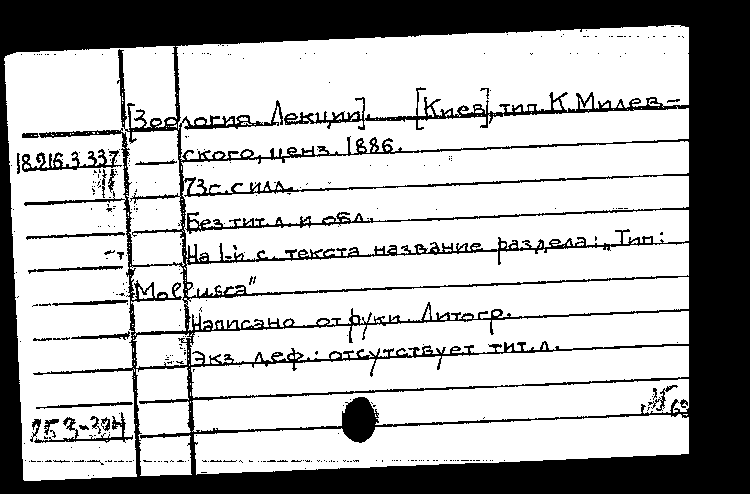 [Зоология. Лекции]. [Киев], тип. К. Милев-
18.216.3.337 ского, ценз. 1886.
73 с. с илл.
Без тит. л. и обл.
На 1-й с. текста название раздела: „Тип:
Mollusca"
Написано от руки. Литогр.
Экз. деф.: отсутствует тит. л.